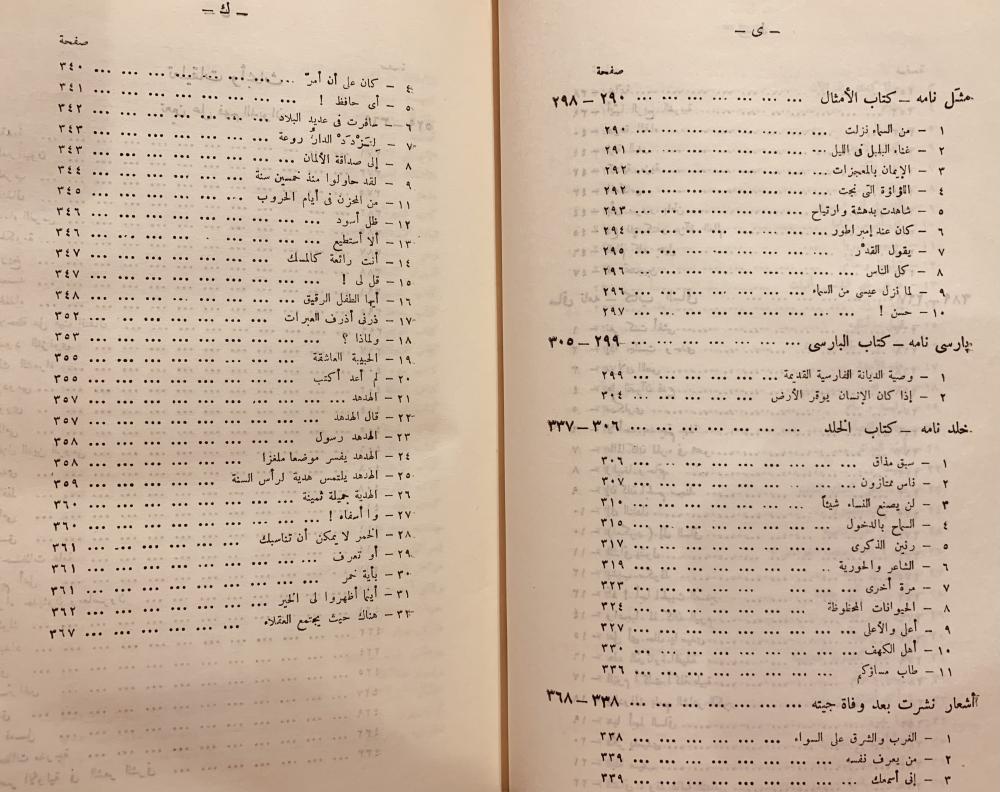 - ى -
صفحة
مثل نامه - كتاب الأمثال ... ... ... ... ... ... ... ٢٩٠ - ٢٩٨
١ - من السماء نزلت ... ... ... ... ... ... ... ٢٩٠
٢ - غناء البلبل فى الليل ... ... ... ... ... ... ... ٢٩١
٣ - الإيمان بالمعجزات ... ... ... ... ... ... ... ٢٩٢
٤ - اللؤلؤة التى نجت ... ... ... ... ... ... ٢٩٢
٥ - شاهدت بدهشة وارتياح ... ... ... ... ... ... ٢٩٣
٦ - كان عند إمبراطور ... ... ... ... ... ... ... ٢٩٤
٧ - يقول القدْر ... ... ... ... ... ... ... ٢٩٥
٨ - كل الناس ... ... ... ... ... ... ... ... ٢٩٦
٩ - لما نزل عيسى من السماء ... ... ... ... ... ... ٢٩٦
١٠ - حسن ! ... ... ... ... ... ... ... ... ٢٩٧
پارسى نامه - كتاب البارسى ... ... ... ... ... ... ٢٩٩ - ٣٠٥
١ - وصية الديانة الفارسية القديمة ... ... ... ... ... ... ٢٩٩
٢ - إذا كان الإنسان يوقر الأرض ... ... ... ... ... ٣٠٤
خلد نامه - كتاب الخلد ... ... ... ... ... ... ... ٣٠٦ - ٣٣٧
١ - سبق مذاق ... ... ... ... ... ... ... ... ٣٠٦
٢ - ناس ممتازون ... ... ... ... ... ... ... ... ٣٠٧
٣ - لن يصنع النساء شيئاً ... ... ... ... ... ... ... ٣١٠
٤ - السماح بالدخول ... ... ... ... ... ... ... ٣١٥
٥ - رنين الذكرى ... ... ... ... ... ... ... ٣١٧
٦ - الشاعر والحورية ... ... ... ... ... ... ... ٣١٩
٧ - مرة أخرى ... ... ... ... ... ... ... ٣٢٣
٨ - الحيوانات المحظوظة ... ... ... ... ... ... ... ٣٢٤
٩ - أعلى والأعلى ... ... ... ... ... ... ... ... ٣٢٧
١٠ - أهل الكهف ... ... ... ... ... ... ... ... ٣٣٠
١١ - طاب مساؤكم ... ... ... ... ... ... ... ... ٣٣٦
أشعار نشرت بعد وفاة جيته ... ... ... ... ... ... ٣٣٨ - ٣٦٨
١ - الغرب والشرق على السواء ... ... ... ... ... ... ٣٣٨
٢ - من يعرف نفسه ... ... ... ... ... ... ... ٣٣٩
٣ - إنى أسمعك ... ... ... ... ... ... ... ٣٣٩
- ك -
صفحة
٤ - كان على أن أمرّ ... ... ... ... ... ... ... ٣٤٠
٥ - أى حافظ ! ... ... ... ... ... ... ... ٣٤١
٦ - سافرت فى عديد البلاد ... ... ... ... ... ... ٣٤٢
٧ - لِتَزْدَدْ الدارُ روعة ... ... ... ... ... ... ٣٤٣
٨ - إلى صداقة الألمان ... ... ... ... ... ... ... ٣٤٣
٩ - لقد حاولوا منذ خمسين سنة ... ... ... ... ... ... ٣٤٤
١١ - من المحزن فى أيام الحروب ... ... ... ... ... ... ٣٤٥
١٢ - ظل أسود ... ... ... ... ... ... ... ٣٤٦
١٣ - ألا أستطيع ... ... ... ... ... ... ... ٣٤٦
١٤ - أنت رائعة كالمسك ... ... ... ... ... ... ٣٤٧
١٥ - قل لى ! ... ... ... ... ... ... ... ٣٤٧
١٦ - أيها الطفل الرقيق ... ... ... ... ... ... ... ٣٤٨
١٧ - ذرنى أذرف العبرات ... ... ... ... ... ... ٣٥٢
١٨ - ولماذا ؟ ... ... ... ... ... ... ... ... ٣٥٣
١٩ - الحبيبة العاشقة ... ... ... ... ... ... ... ٣٥٥
٢٠ - لم أعد أكتب ... ... ... ... ... ... ... ٣٥٥
٢١ - الهدهد ... ... ... ... ... ... ... ... ٣٥٧
٢٢ - قال الهدهد ... ... ... ... ... ... ... ... ٣٥٧
٢٣ - الهدهد رسول ... ... ... ... ... ... ... ٣٥٨
٢٤ - الهدهد يفسر موضعا ملغزا ... ... ... ... ... ... ٣٥٨
٢٥ - الهدهد يلتمس هدية لرأس السنة ... ... ... ... ... ٣٥٩
٢٦ - الهدية جميلة ثمينة ... ... ... ... ... ... ... ٣٦٠
٢٧ - وا أسفاه ! ... ... ... ... ... ... ... ... ٣٦٠
٢٨ - الخمر لا يمكن أن تناسبك ... ... ... ... ... ... ٣٦١
٢٩ - أو تعرف ... ... ... ... ... ... ... ... ٣٦١
٣٠ - بأية خمر ... ... ... ... ... ... ... ... ٣٦١
٣١ - أينما أظهروا لى الخير ... ... ... ... ... ... ... ٣٦٢
٣٢ - هناك حيث يجتمع العقلاء ... ... ... ... ... ... ٣٦٧